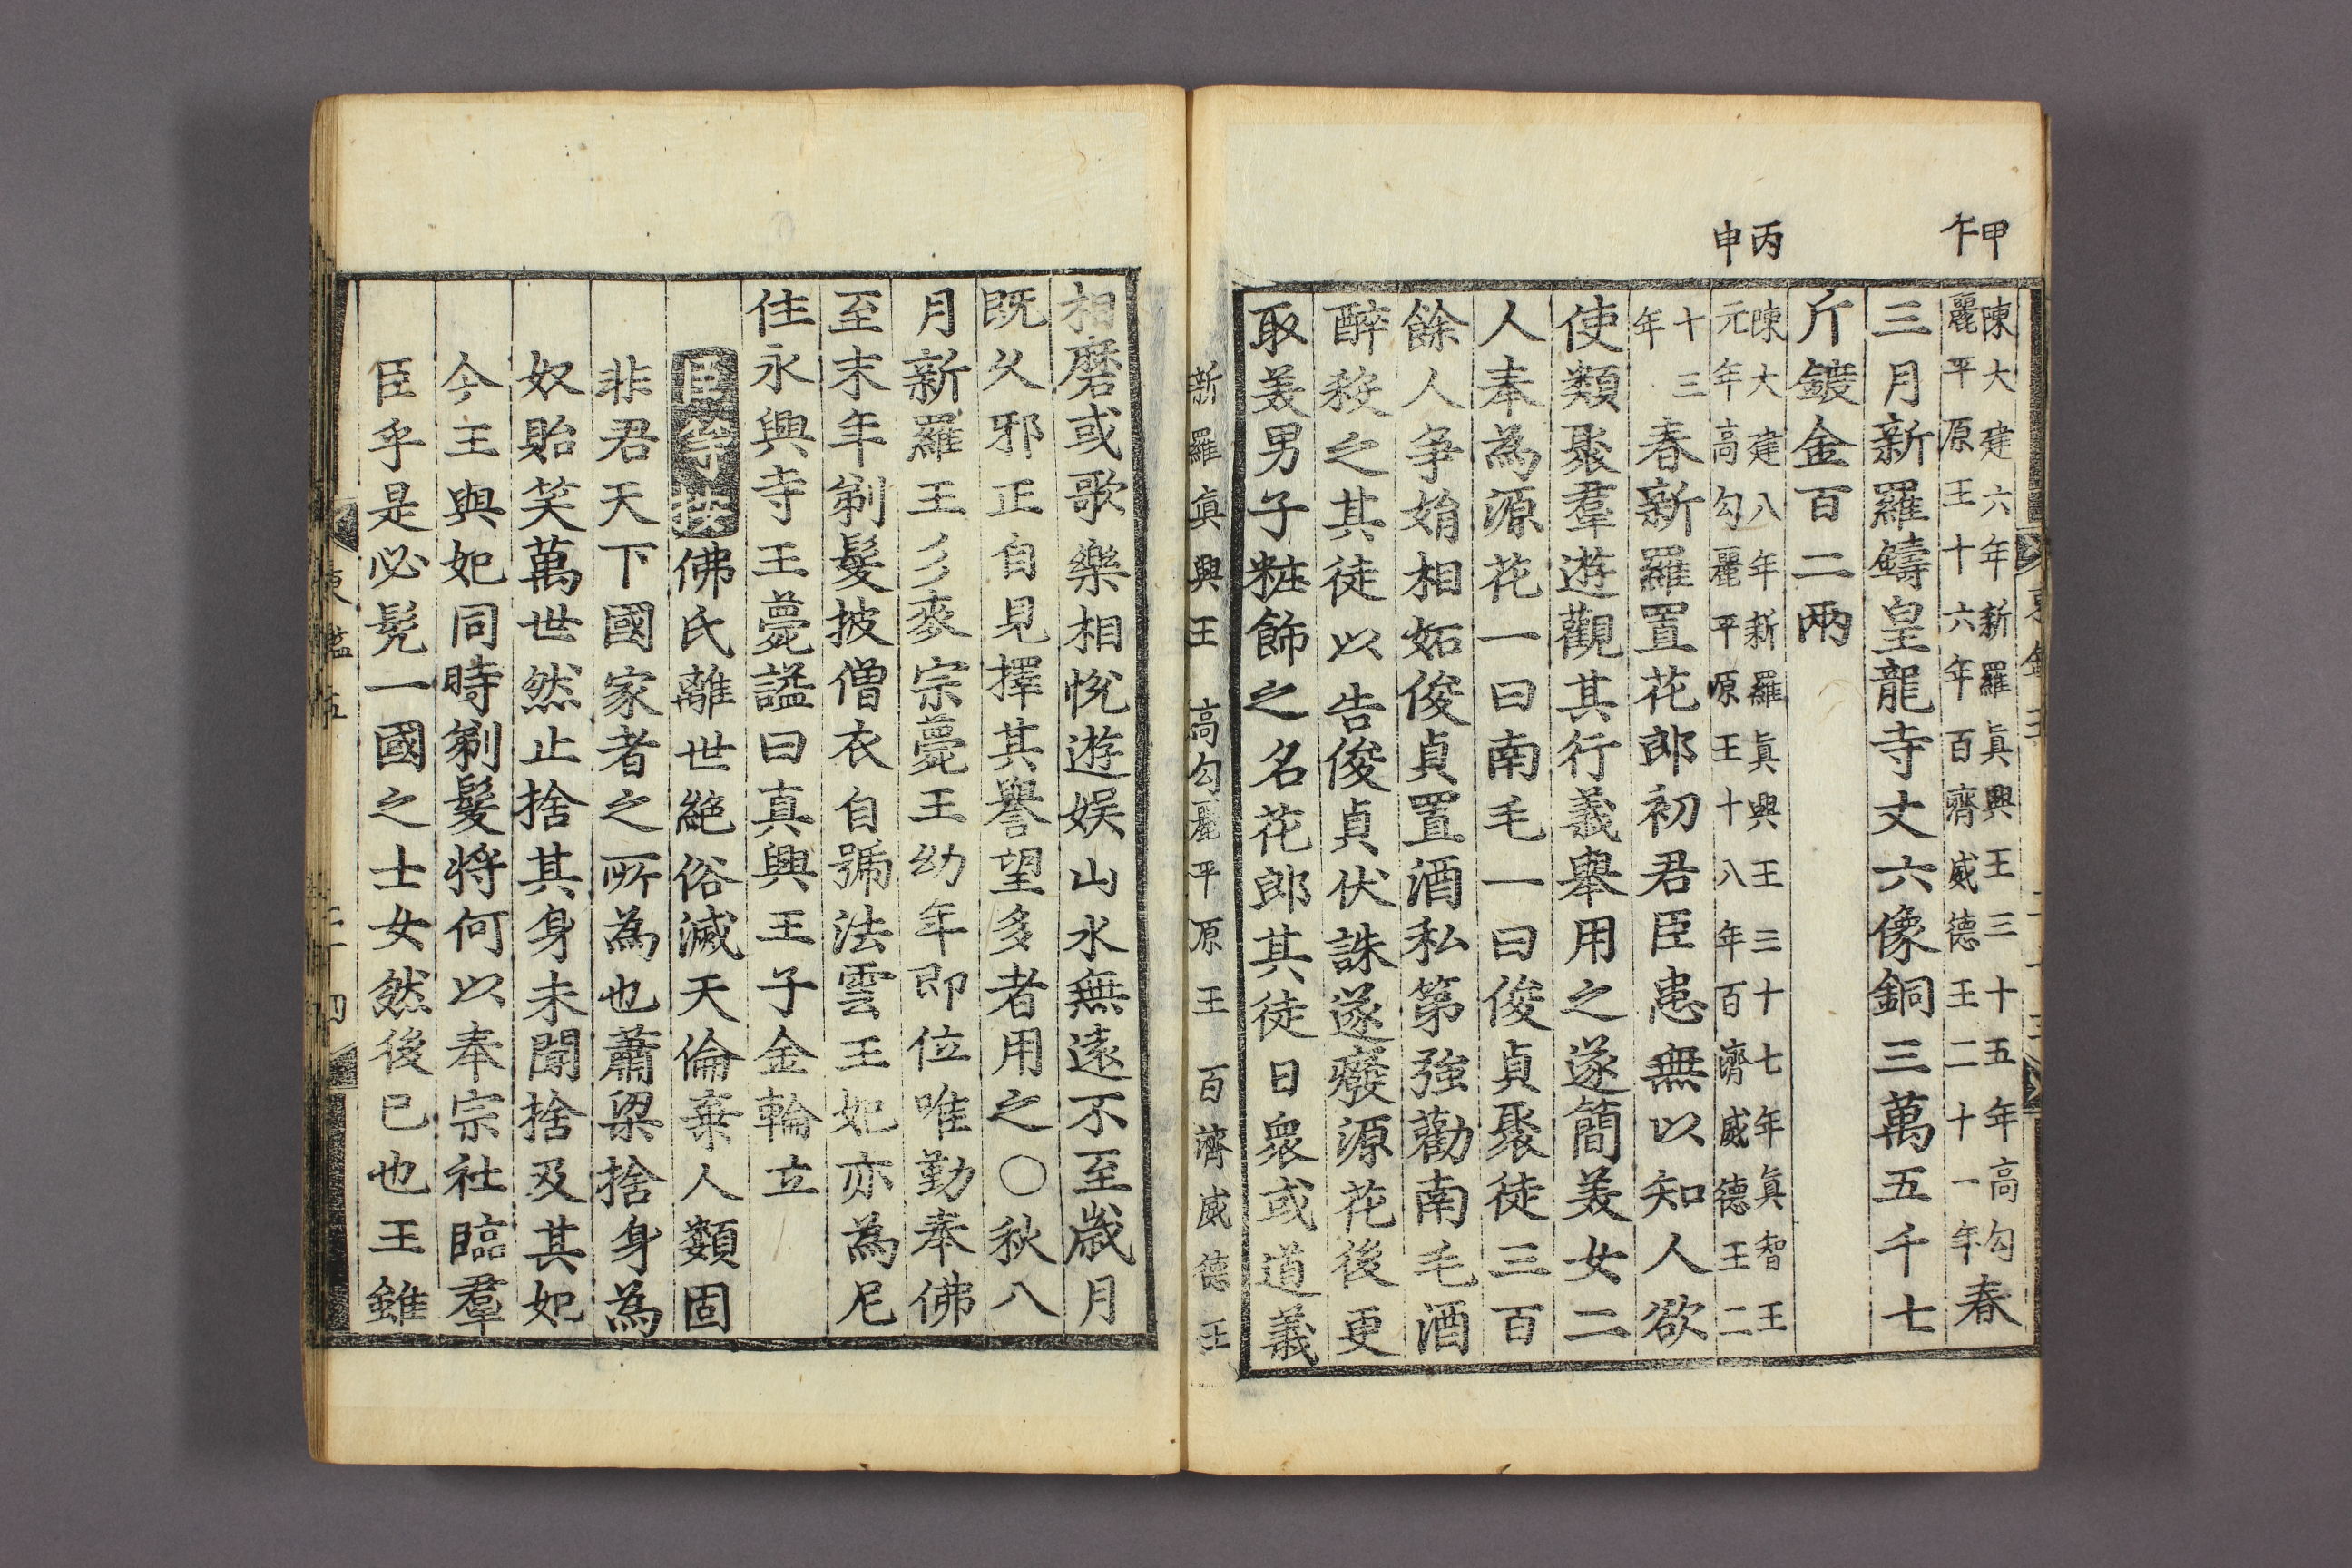 甲午
陳大建六年新羅眞興王三十五年高勾
麗平原王十六年百濟威德王二十一年春
三月新羅鑄皇龍寺丈六像銅三萬五千七
斤鍍金百二兩
丙申
陳大建八年新羅眞興王三十七年眞智王
元年高勾麗平原王十八年百濟威德王二
十三年春新羅置花郎初君臣患無以知人欲
使類聚羣遊觀其行義舉用之遂簡美女二
人奉為源花一曰南毛一曰俊貞聚徒三百
餘人爭娟相妬俊貞置酒私第強勸南毛酒
醉殺之其徒以告俊貞伏誅遂癈源花後更
取美男子粧飾之名花郎其徒日衆或道義
新羅眞興王 高勾麗平原王 百濟威德王
相磨或歌樂相悅遊娛山水無遠不至歲月
既久邪正自見擇其譽望多者用之○秋八
月新羅王彡麥宗薨王幼年即位唯勤奉佛
至末年剃髮披僧衣自號法雲王妃亦為尼
住永興寺王薨謚曰真興王子金輪立
臣等按佛氏離世絕俗滅天倫棄人類固
非君天下國家者之所為也蕭梁捨身為
奴貽笑萬世然止捨其身未聞捨及其妃
今王與妃同時剃髮將何以奉宗社臨羣
臣乎是必髠一國之士女然後已也王雖
東鑑五